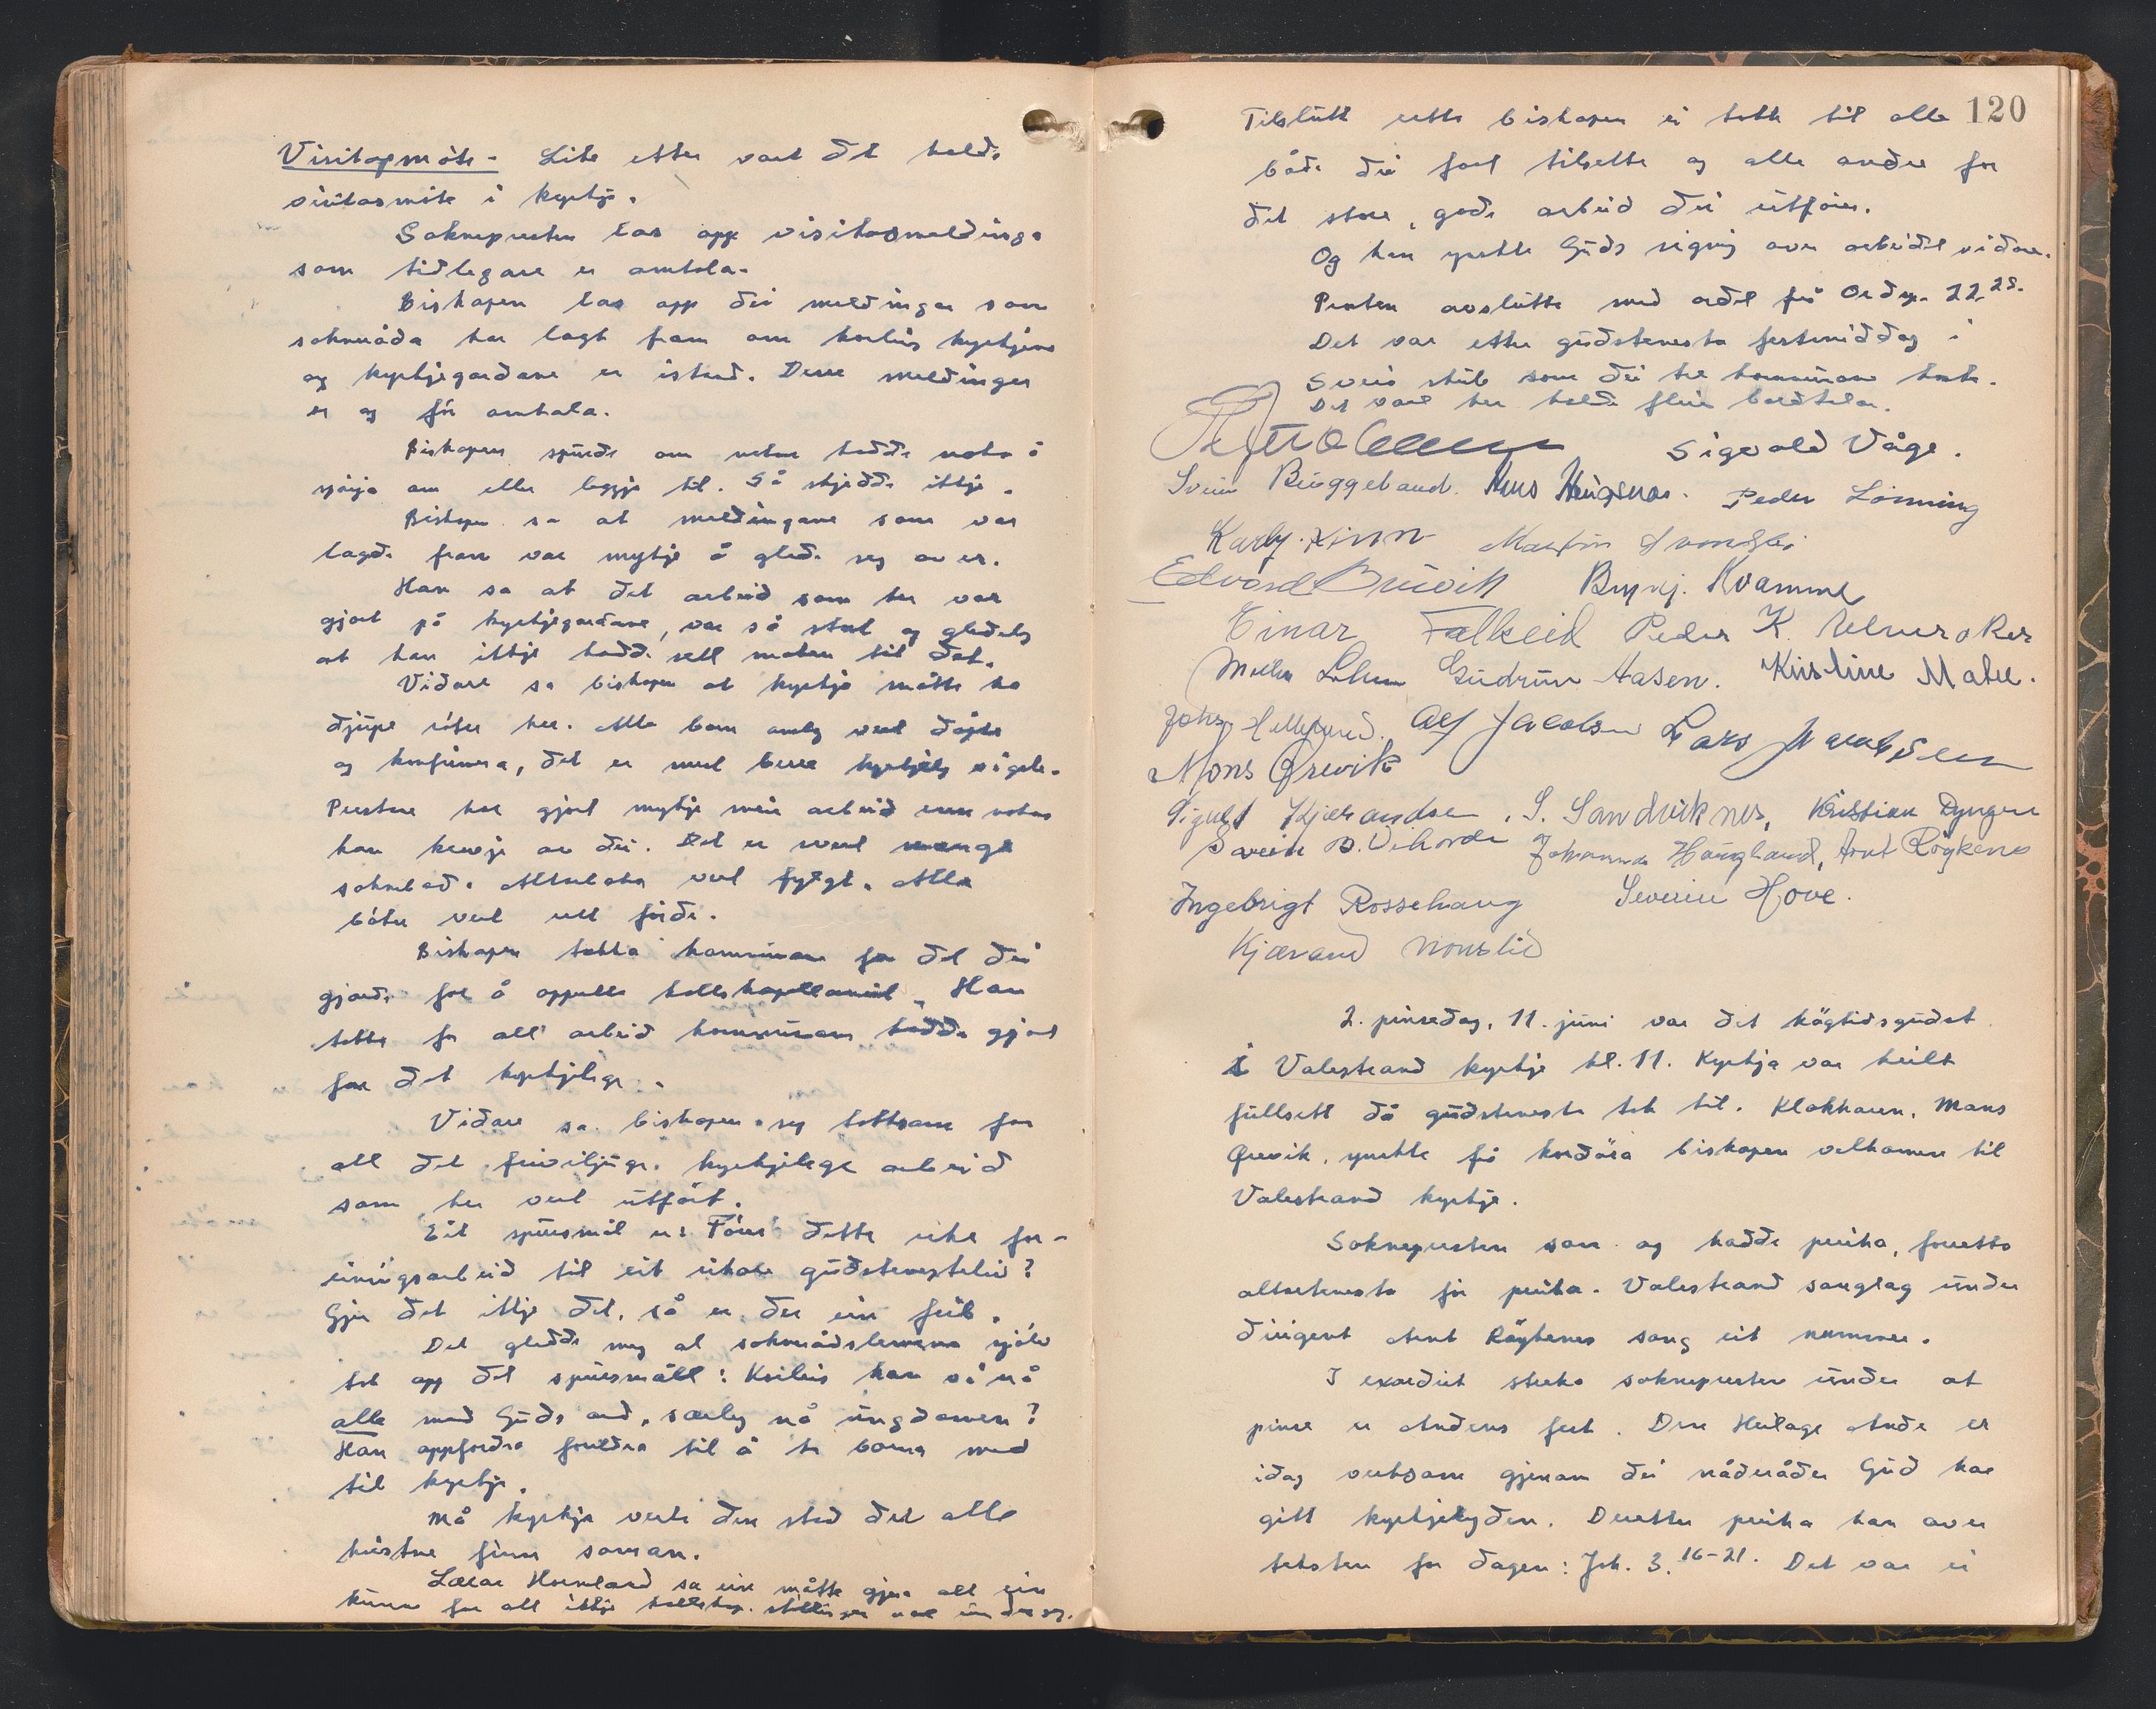 Visitasmöte - Lite etter vart det halde
visitasmöte i kyrkja.
Soknepresten las opp visitasmeldinga
som tidlegare er omtala.
Biskopen las opp dei meldingar som
sokneråda har lagt fram om korleis kyrkjene
og kyrkjegardane er istand. Desse meldingar
er og för omtala.
Biskopen spurde om nokon hadde noko å
spörja om eller leggja til. Så skjedde ikkje.
Biskopen sa at meldingane som var
lagde fram var mykje å glede seg over.
Han sa at det arbeid som her var
gjort på kyrkjegardane, var så stort og gledeleg
at han ikkje hadde sett maken til det.
Vidare sa biskopen at kyrkja måtte ha
djupe röter her. Alle born vert döypte
og konfirmera, det er mest berre kyrkjeleg vigsle.
Prestane har gjort mykje meir arbeid enn nokon
kan krevje av dei. Det er mange
soknebod. vert fylgt. Alle
böker vert rett förde.
Biskopen takka kommunane for det dei
gjorde for å oppretta hjelpekapellanint. Han
takka for alt arbeid kommunane hadde gjort
for det kyrkjelege.
Vidare sa biskopen seg takksam for
alt det friviljuge kyrkjelege arbeid
som her vert utfört.
Eit spursmål er: Förer dette rike for-
einingsarbeid til eit rikare gudstenesteliv?
Gjer det ikkje det, så er der ein feil.
Det gledde meg at sokneråðslemene sjölv
tok opp det spursmålet: Korleis kan vi nå
alle med Guds ord, særleg nå ungdomen?
Han oppfordra foreldra til å ta borna med
til kyrkje.
Må kyrkja verta den stad der alle
kristne finn saman.
Lærar Hovland sa ein måtte gjera alt ein
kunne for at ikkje stillinga vart
120
Tilslutt retta biskopen ei takk til alle
både dei fast tilsette og alle andre for
det store, gode arbeid dei utförer.
Og han ynskte Guds signing over arbeidet vidare.
Prosten avslutta med ordet frå Ordsp. 22,28.
Det var etter gudstenesta festmiddag i
Sveio skule som dei tre kommunane heldt.
Det vart her halde fleire bordtalar.
Sigvald Våge.
Svein Buggeland. Hans Haugsnes. Peder Lönning
Karly. Finn Martin
Edvard Buvik Brynj. Kvamme
Einar Falkeid Peder K.
Gudrun Aasen. Kristine Matre.
Johs. Alf Jacobsen Lars Jacobsen
Mons Grevik
Sigurd Kjærandsen, S. Sandviknes, Kristian Dyngen
Sverre B. Vihovde og Johannes Haugland, Arnt Röykenes
Ingebrigt Rossehaug Severin Hove.
Kjærand Nonslid
2. pinsedag, 11. juni var det högtidsgudst
i Valestrand kyrkje kl. 11. Kyrkja var heilt
fullsett då gudstenesta tok til. Klokkaren, Mons
Grevik, ynskte frå kordöra biskopen velkomen til
Valestrand kyrkje.
Soknepresten som og hadde preika, forretta
altartenesta för preika. Valestrand songlag under
dirigent Arnt Röykenes song eit nummer.
I exordiet streka soknepresten under at
pinse er Andens fest. Den Heilage Ande er
idag verksam gjenom dei nåderåder Gud har
gitt kyrkjelyden. Deretter preika han over
teksten for dagen: Joh. 3. 16-21. Det var ei